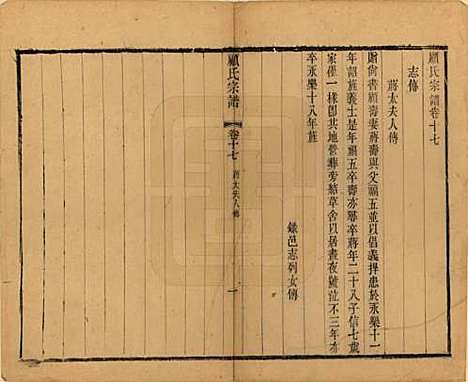 顧氏宗譜卷十七
志傳
蔣太夫人傳
贈尚書顧壽妻蔣壽與父顧五並以倡義捍患於永樂十一
年詔旌義士是年顧五卒壽亦舉卒蔣年二十八子信七歲
家僅一椽卽其地營葬旁結草舍以居晝夜號泣不三年亦
卒永樂十八年旌
錄邑志列女傳
顧氏宗譜
卷十七
蔣太夫人傳
一